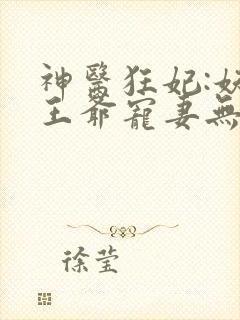 神醫狂妃:
王爺寵妻無
徐莹